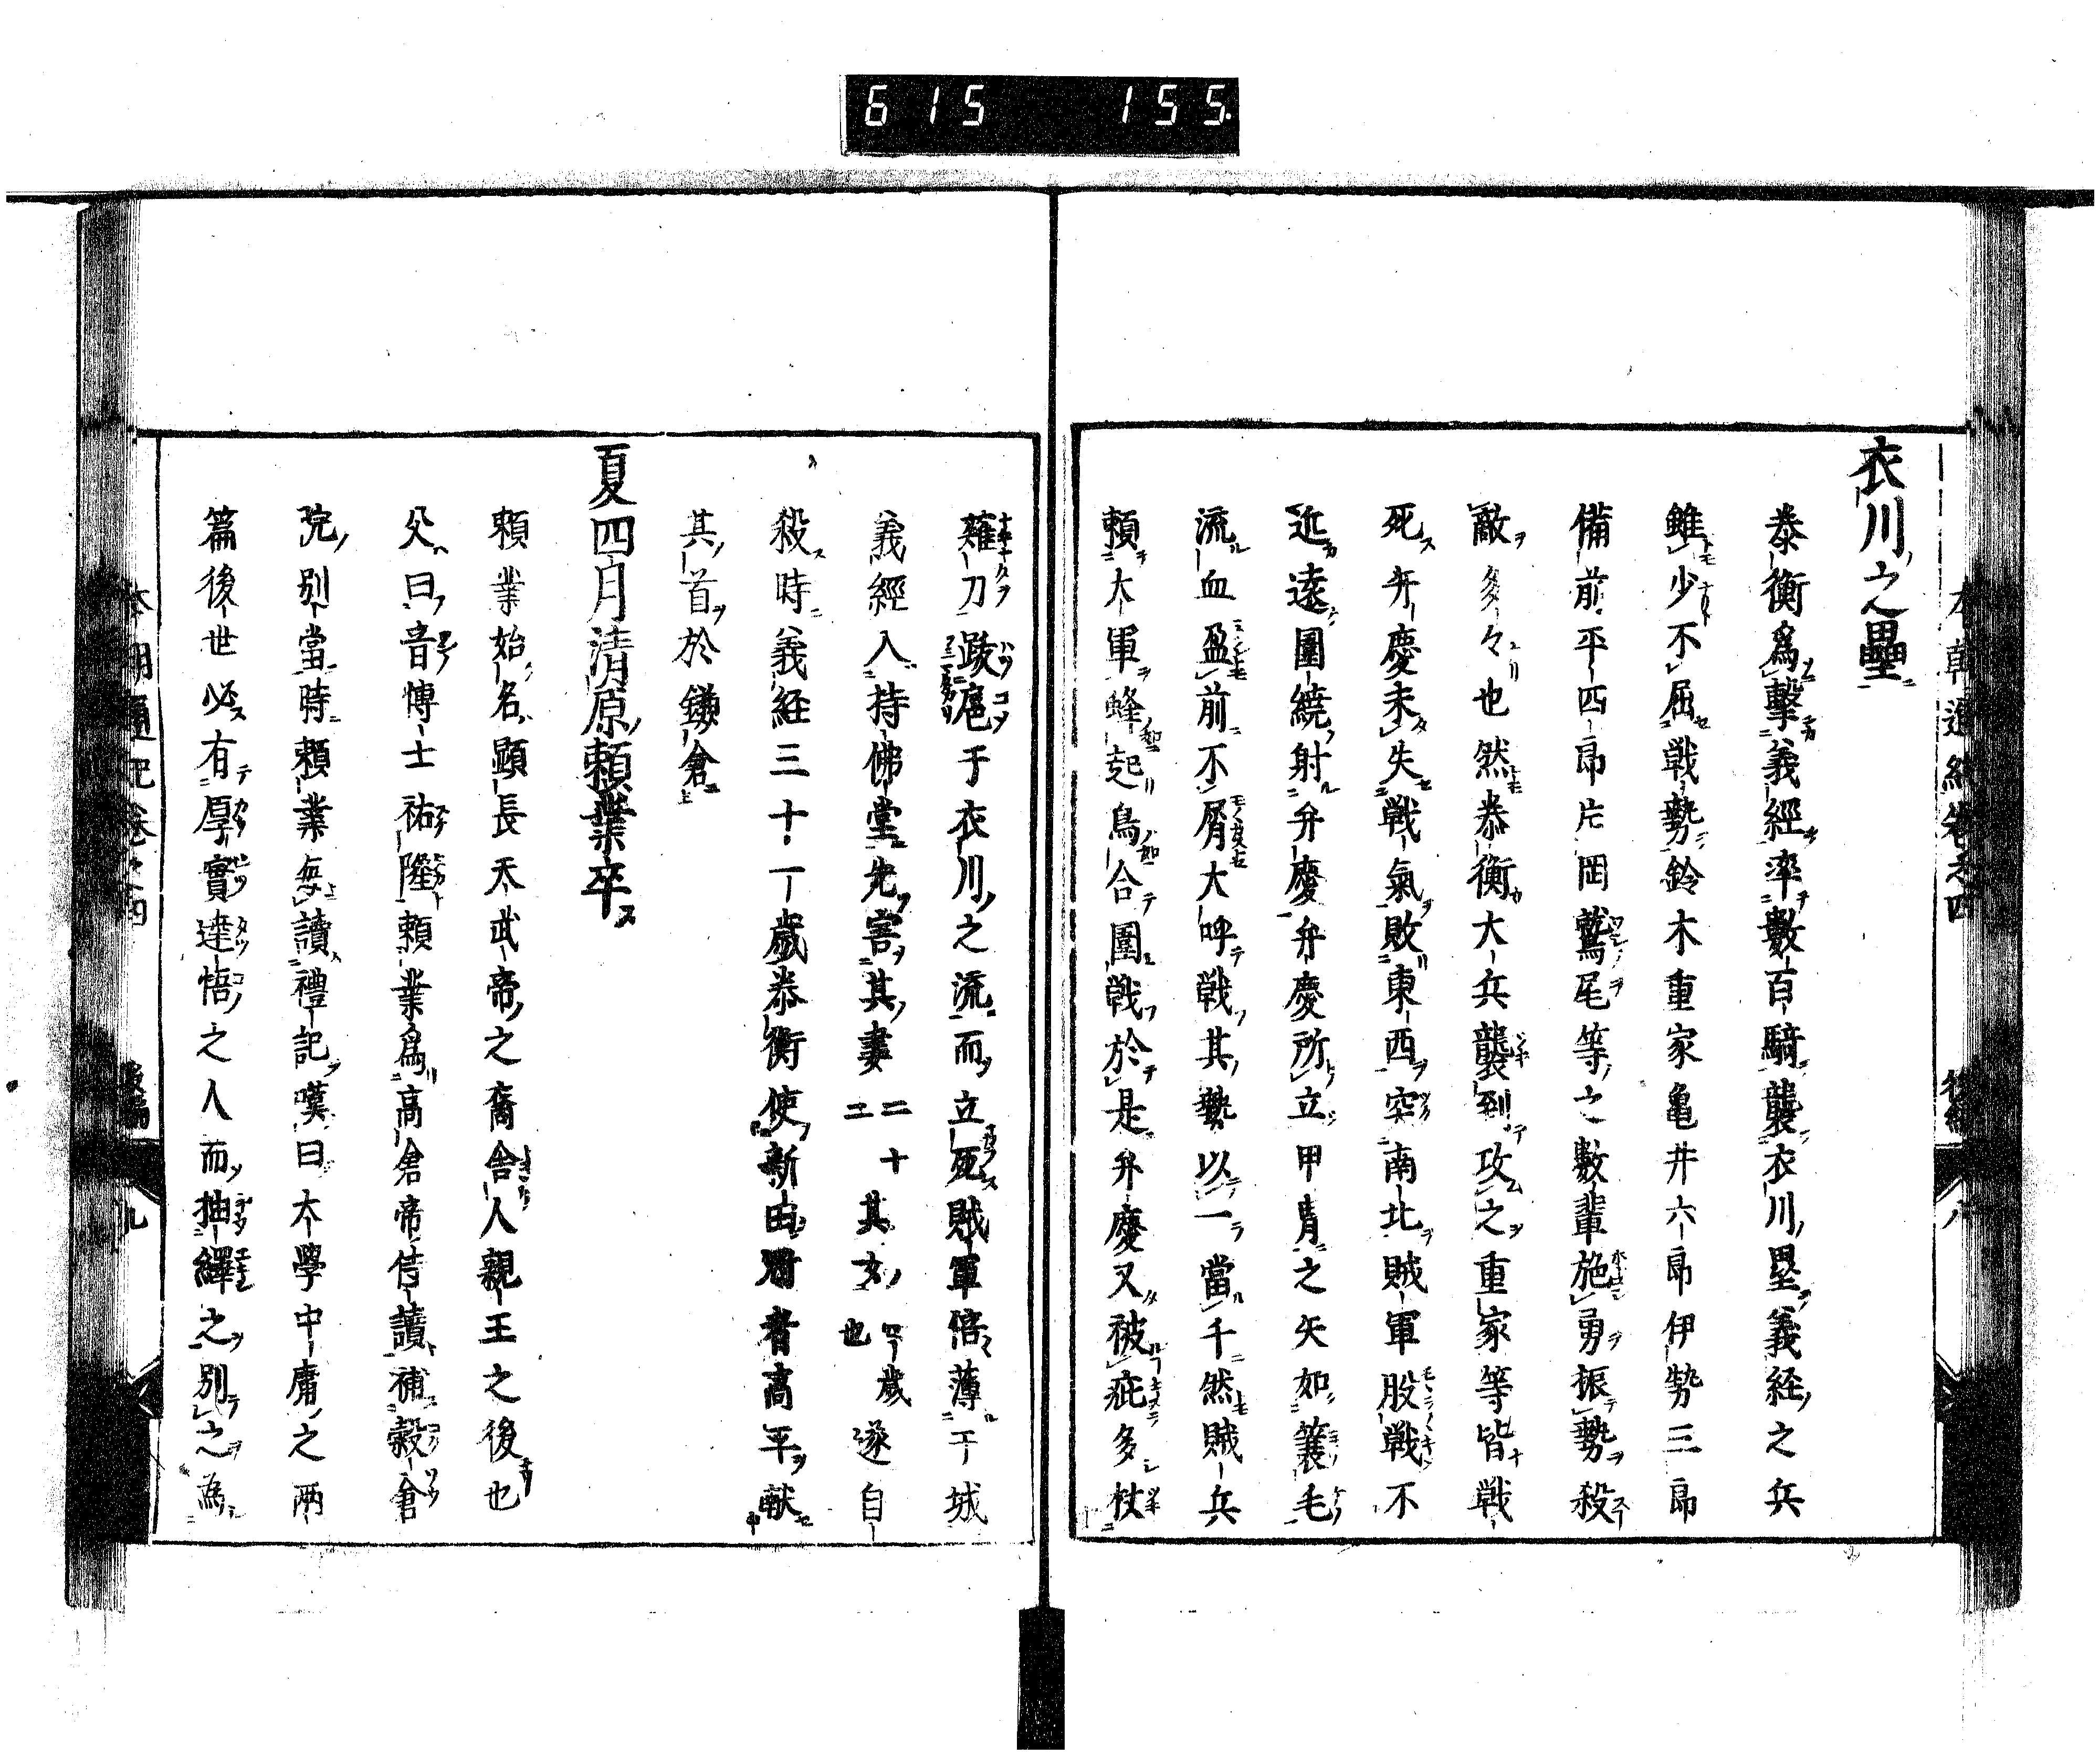 615 155
本朝通紀卷之四 後編 八
衣川之壘
泰衡爲擊義經率數百騎襲衣川壘義経之兵
雖少不屈戦勢鈴木重家亀井六郎伊勢三郎
備前平四郎片岡鷲尾等之數輩施勇振勢殺
敵多々也然泰衡大兵襲到攻之重家等皆戦
死弁慶未失戦氣敗東西突南北賊軍股戦不
近遠圍繞射弁慶弁慶所立甲胄之矢如簑毛
流血盈前不屑大呼戦其勢以一當千然賊兵
頼大軍蜂起烏合圍戦於是弁慶又被疵多杖
薙刀跋扈于衣川之流而立死賊軍倍薄于城
義經入持佛堂先害其妻二十二其女四歳也遂自
殺時義経三十一歳泰衡使新田冠者高平献
其首於鎌倉
夏四月清原頼業卒
頼業始名顯長天武帝之裔舎人親王之後也
父曰音博士祐隆頼業爲高倉帝侍讀補穀倉
院別當時頼業毎讀禮記嘆曰大學中庸之兩
篇後世必有厚實達悟之人而抽繹之別之為
本朝通紀卷之四 後編 九